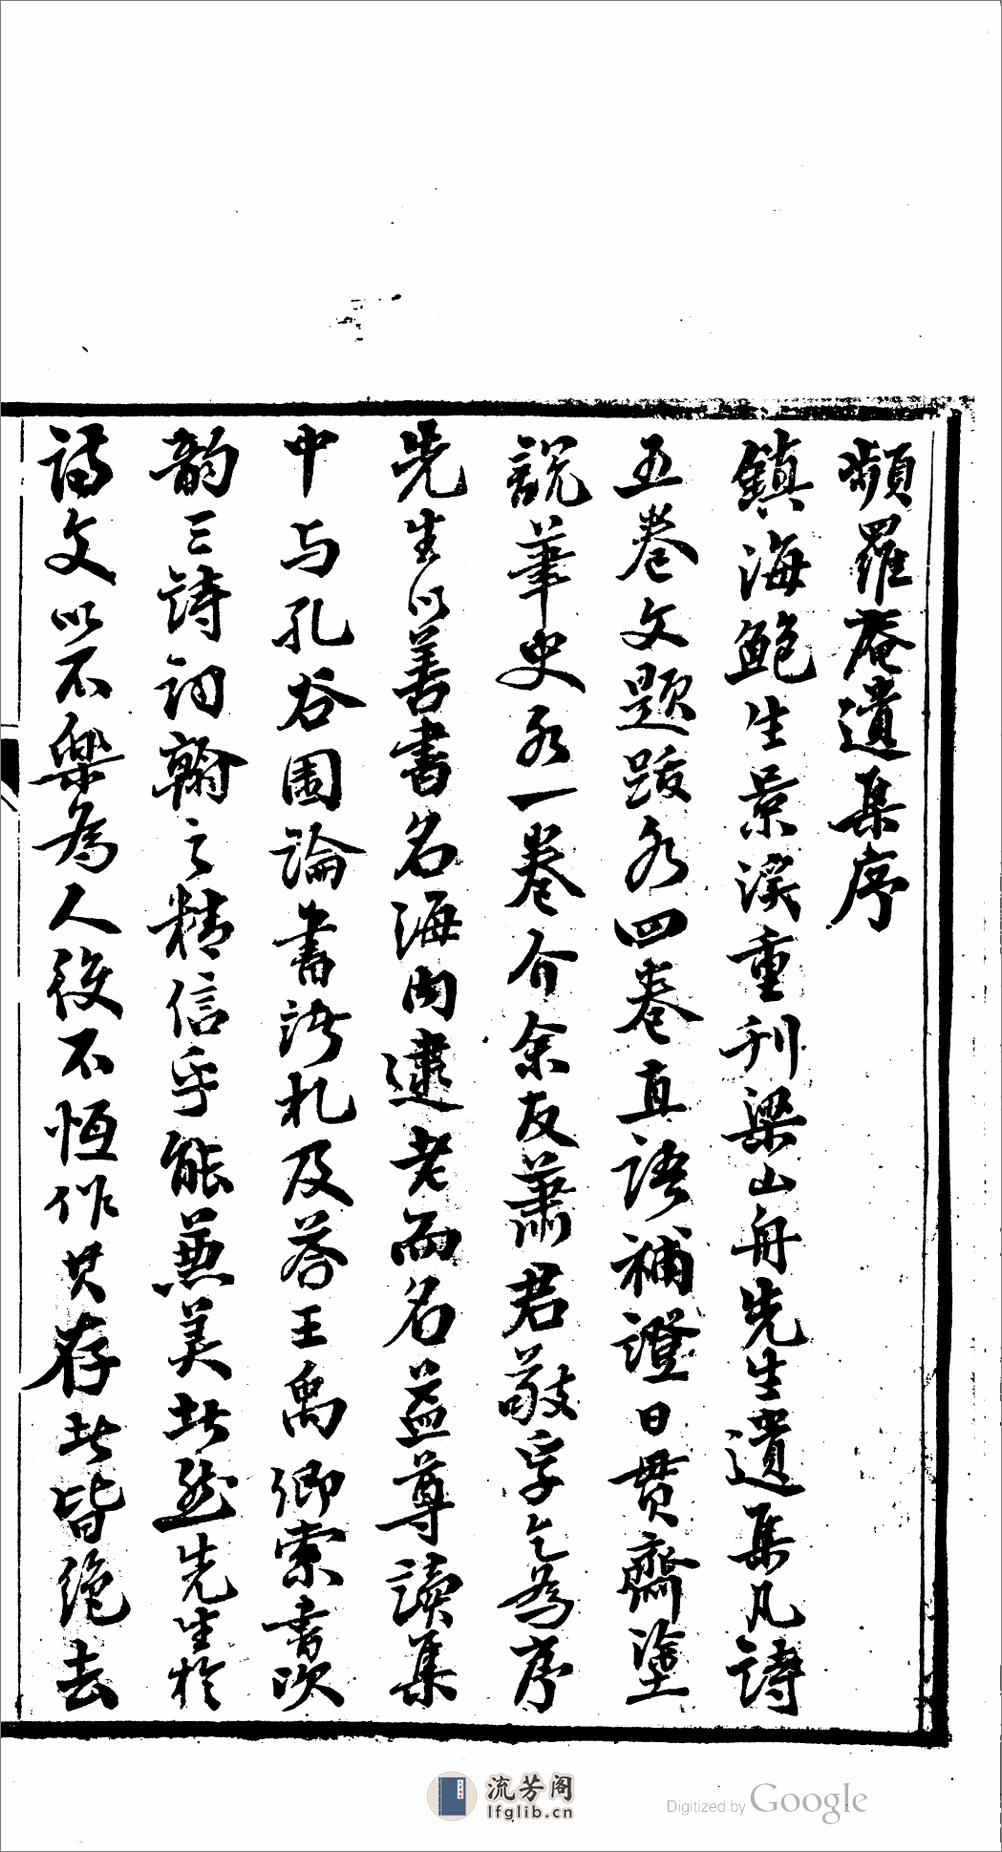 頻羅菴遺集序
鎮海鮑生景溪重刊梁山舟先生遺集凡詩
五卷文題跋各四卷直語補證日貫齋塗
說筆史各一卷介余友蕭君敬孚乞為序
先生以善書名海內逮老而名益尊讀集
中与孔谷園論書諸札及荅王禹卿索書次
韵三詩詞翰之精信乎能兼美者然先生於
詩文以不樂為人役不恆作其存者皆絶去
流芳阁
lfglib.cn
Digitized by Google